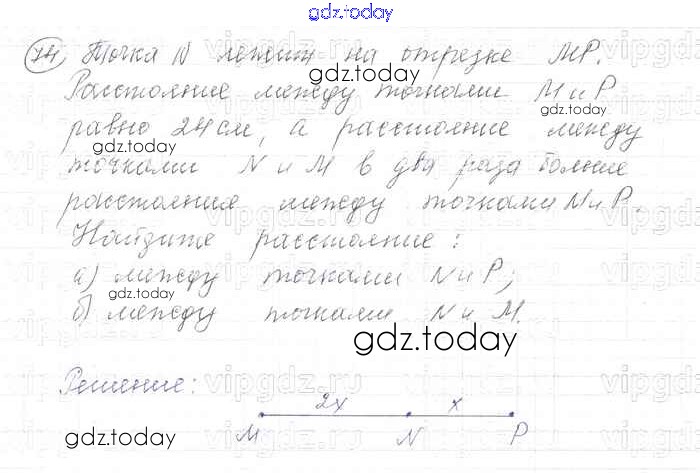 gdz.today
74. Точка N лежит на отрезке MP.
gdz.today
Расстояние между точками M и P
равно 24 см, а расстояние между
gdz.today
точками N и M в два раза больше
расстояния между точками N и P.
Найдите расстояние:
а) между точками N и P;
gdz.today
б) между точками N и M.
gdz.today
Решение:
2x x
gdz.today
M N P